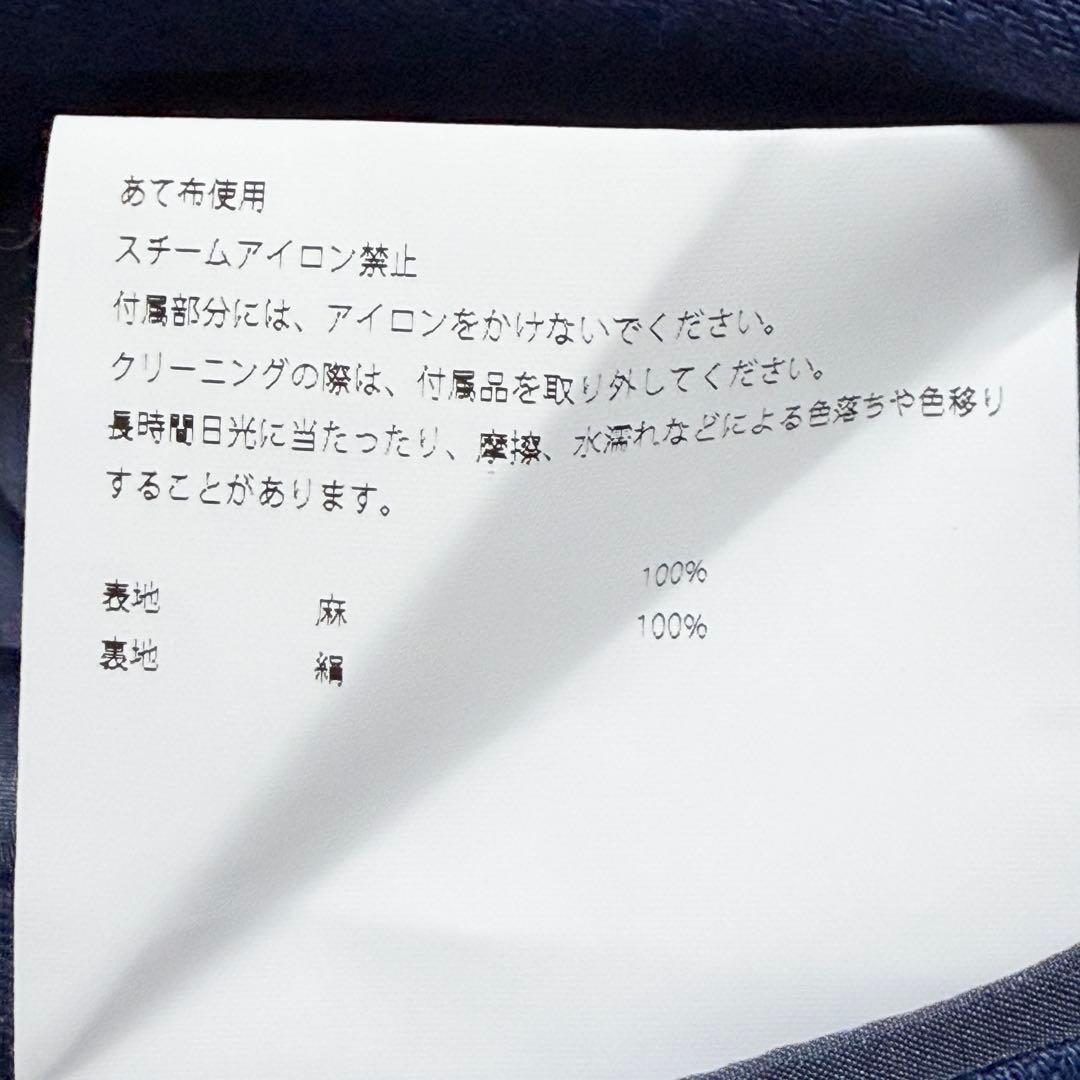 あて布使用
スチームアイロン禁止
付属部分には、アイロンをかけないでください。
クリーニングの際は、付属品を取り外してください。
長時間日光に当たったり、摩擦、水濡れなどによる色落ちや色移り
することがあります。
表地 麻 100%
裏地 絹 100%